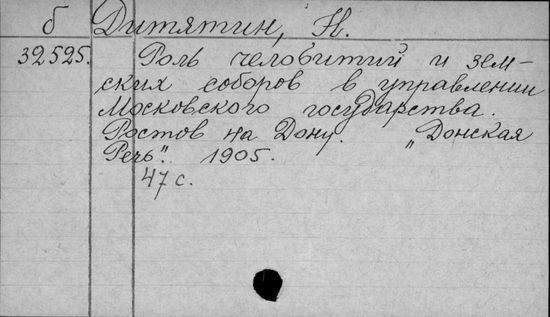 б Дитятин, Н.
32525. Роль челобитий и зем-
ских соборов в управлении
Московского государства.
Ростов на Дону. „Донская
Речь". 1905.
47 с.